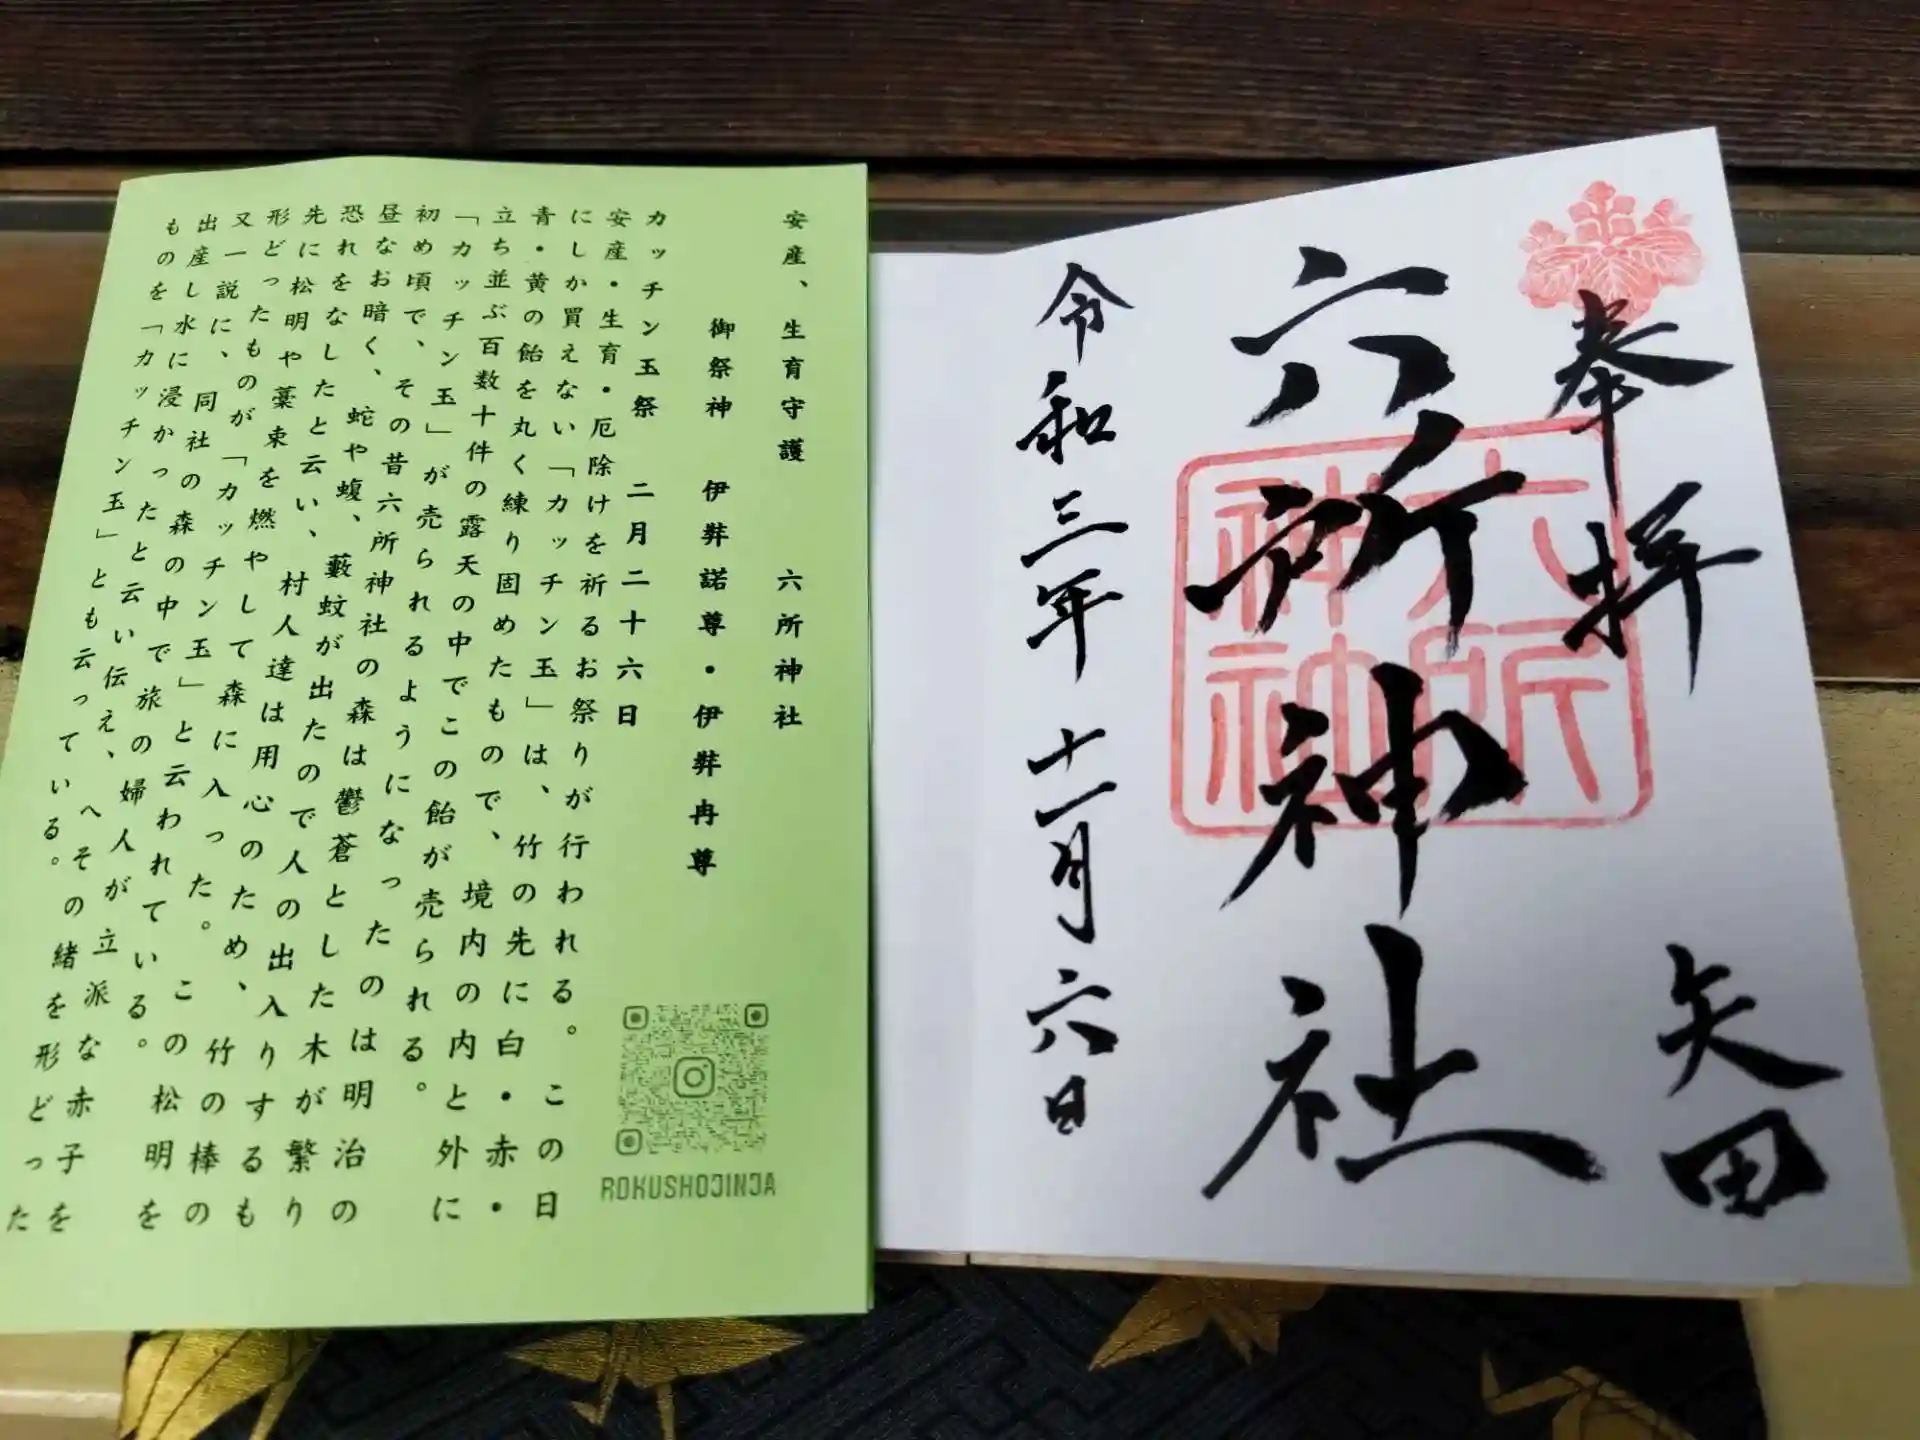 安産、生育守護　六所神社
御祭神　伊弉諾尊・伊弉冉尊
カッチン玉祭　二月二十六日
安産・生育・厄除けを祈るお祭りが行われる。この日
にしか買えない「カッチン玉」は、竹の先に白・赤・
青・黄の飴を丸く練り固めたもので、境内の内と外に
立ち並ぶ百数十件の露天の中でこの飴が売られる。
「カッチン玉」が売られるようになったのは明治の
初め頃で、その昔六所神社の森は鬱蒼とした木が繁り
昼なお暗く、蛇や蝮、藪蚊が出たので人の出入りするも
恐れをなしたと云い、村人達は用心のため、竹の棒の
先に松明や藁束を燃やして森に入った。この松明を
形どったものが「カッチン玉」と云われている。
又一説に、同社の森の中で旅の婦人が立派な赤子を
出産し水に浸かったと云い伝え、へその緒を形どった
ものを「カッチン玉」とも云っている。
ROKUSHOJINJA
奉拝　矢田
六所神社
六所
神社
令和三年十一月六日